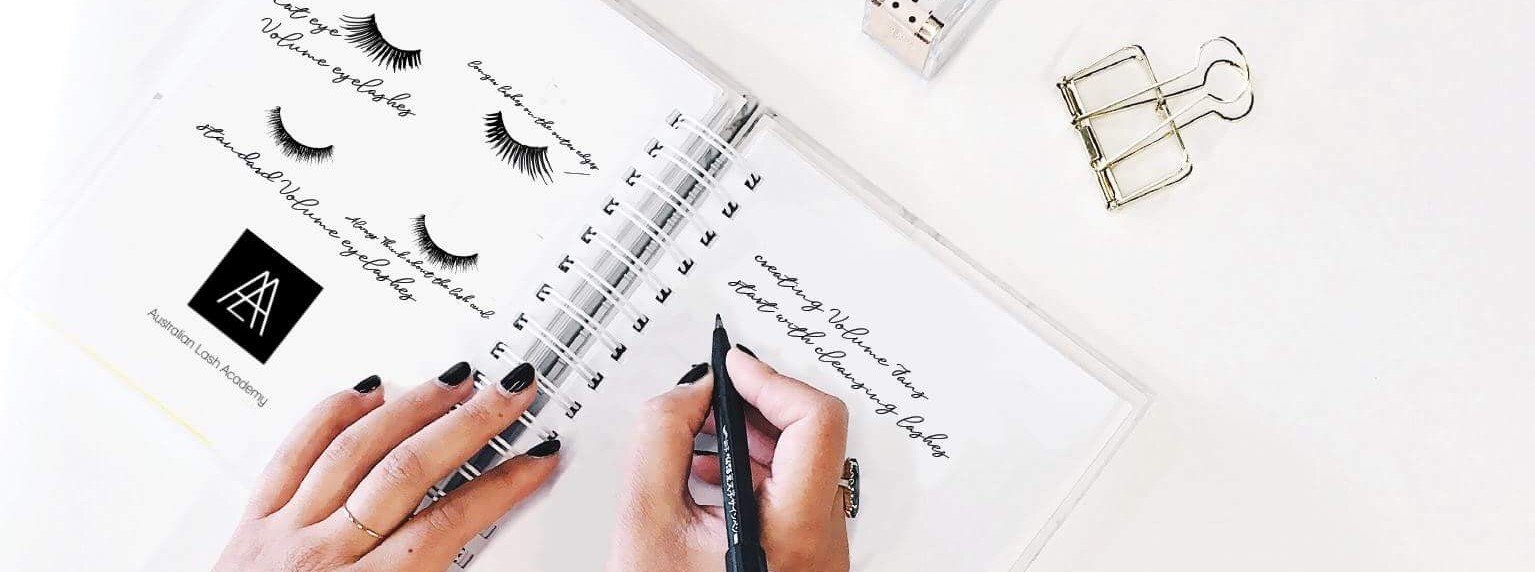 Cat eye
Volume eyelashes
longer lashes on the outer edges
standard Volume eyelashes
Always Think about the lash curl
ALA
Australian Lash Academy
creating Volume fans
start with cleansing lashes